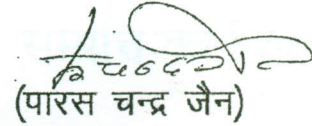 (पारस चन्द्र जैन)